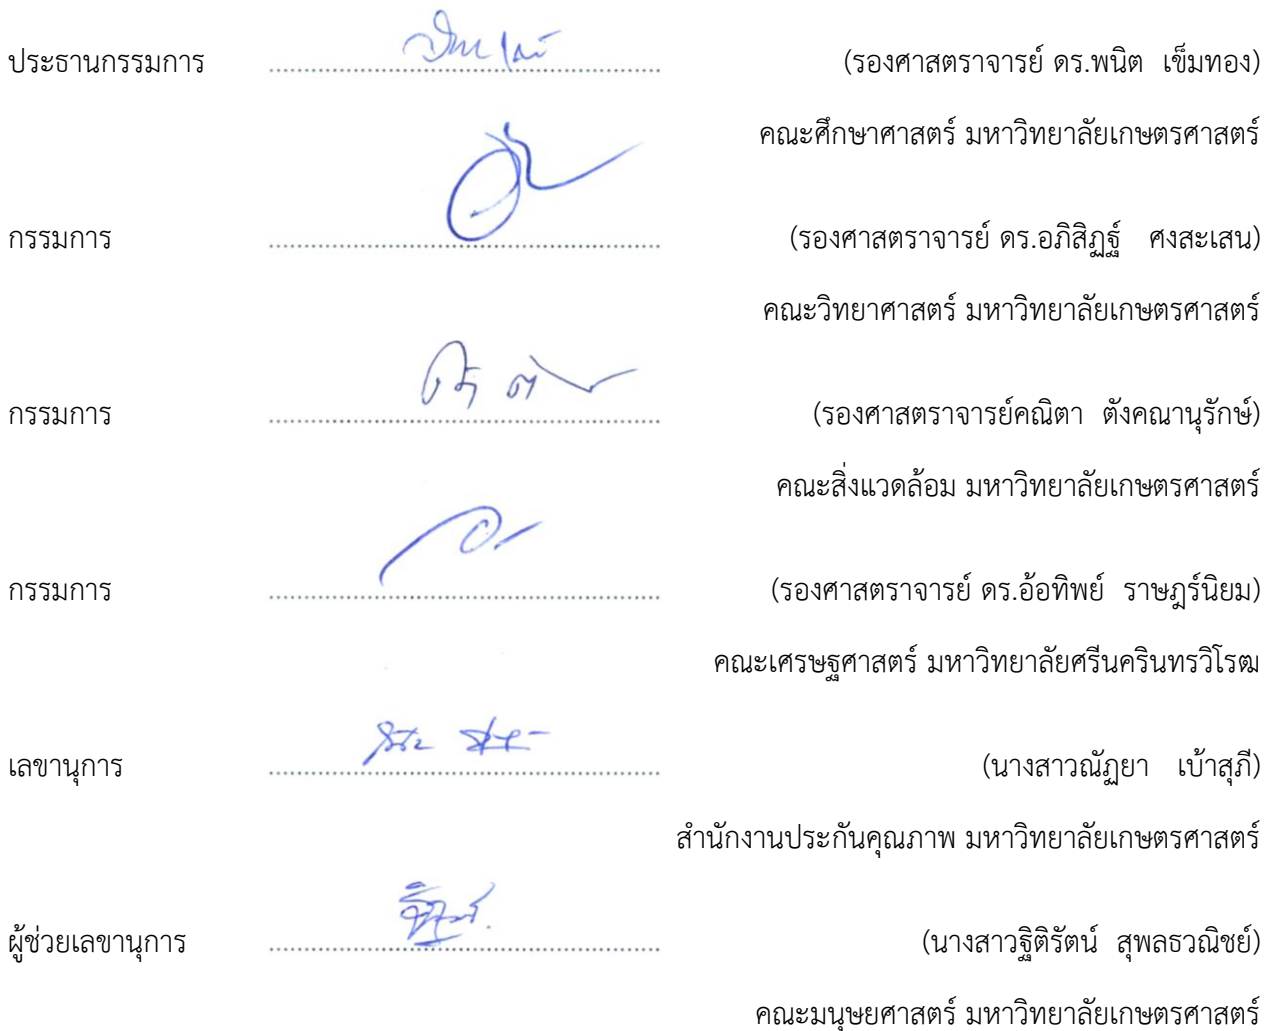 ประธานกรรมการ ........................ (รองศาสตราจารย์ ดร.พนิต เข็มทอง)
คณะศึกษาศาสตร์ มหาวิทยาลัยเกษตรศาสตร์
กรรมการ ........................ (รองศาสตราจารย์ ดร.อภิสิฏฐ์ ศงสะเสน)
คณะวิทยาศาสตร์ มหาวิทยาลัยเกษตรศาสตร์
กรรมการ ........................ (รองศาสตราจารย์คณิตา ตังคณานุรักษ์)
คณะสิ่งแวดล้อม มหาวิทยาลัยเกษตรศาสตร์
กรรมการ ........................ (รองศาสตราจารย์ ดร.อ้อทิพย์ ราษฎร์นิยม)
คณะเศรษฐศาสตร์ มหาวิทยาลัยศรีนครินทรวิโรฒ
เลขานุการ ........................ (นางสาวณัฏยา เบ้าสุภี)
สำนักงานประกันคุณภาพ มหาวิทยาลัยเกษตรศาสตร์
ผู้ช่วยเลขานุการ ........................ (นางสาวฐิติรัตน์ สุพลธวณิชย์)
คณะมนุษยศาสตร์ มหาวิทยาลัยเกษตรศาสตร์